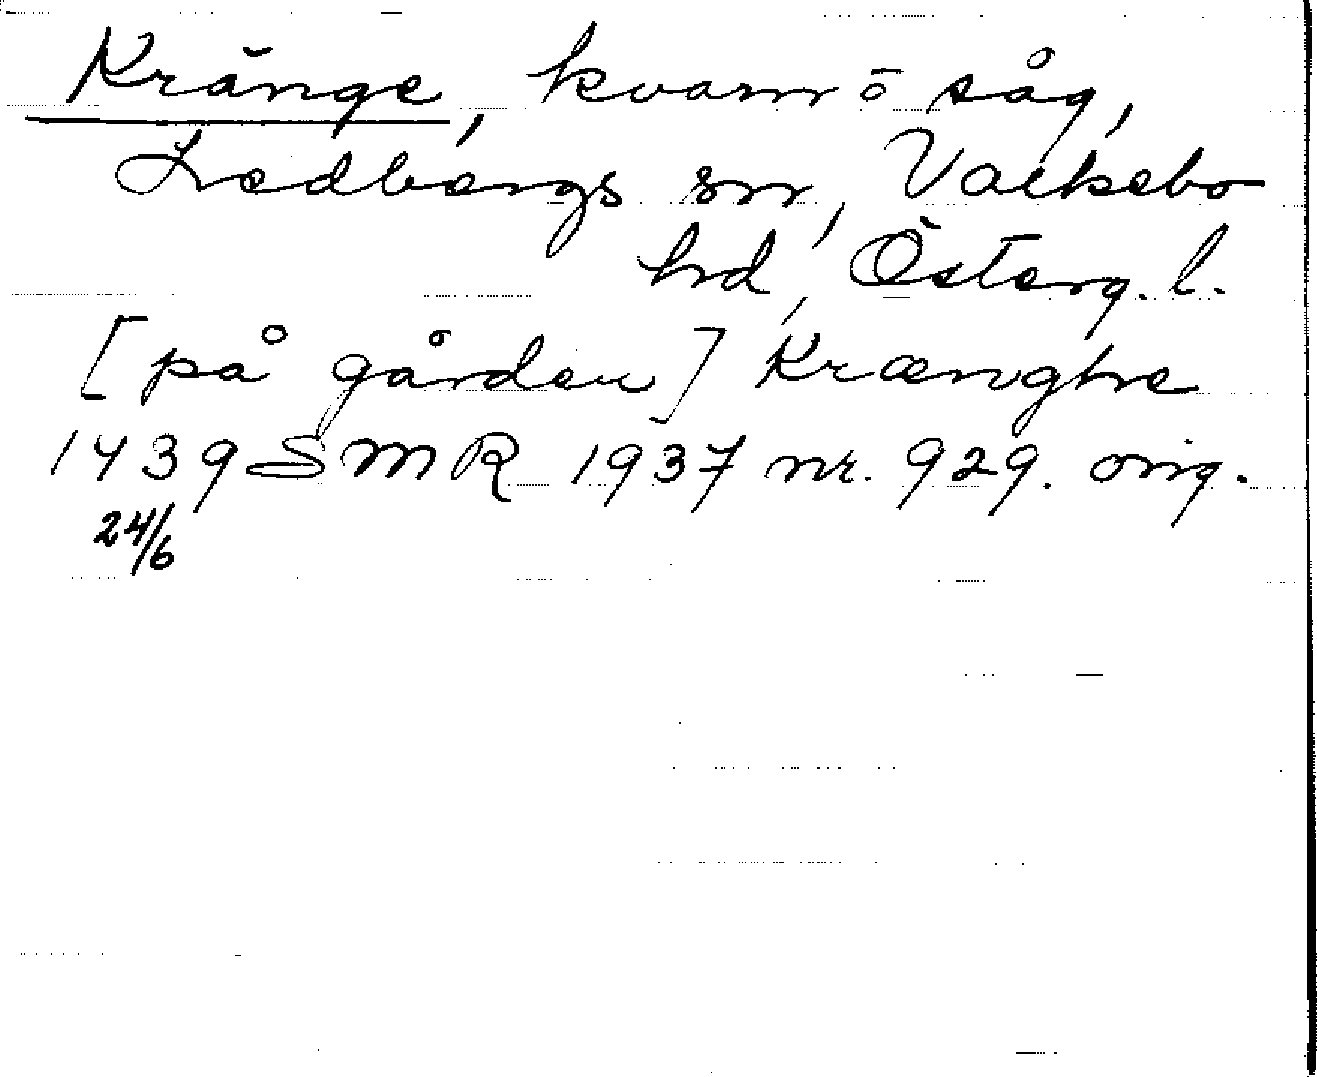 Kränge, kvarn o såg,
Ledbergs sn, Valkebo
hd, Österg. l.
[på gården] Krænghe
1439 SMR 1937 nr. 929. orig.
24/6